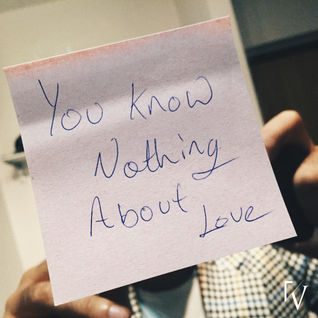 You know
Nothing
About
Love